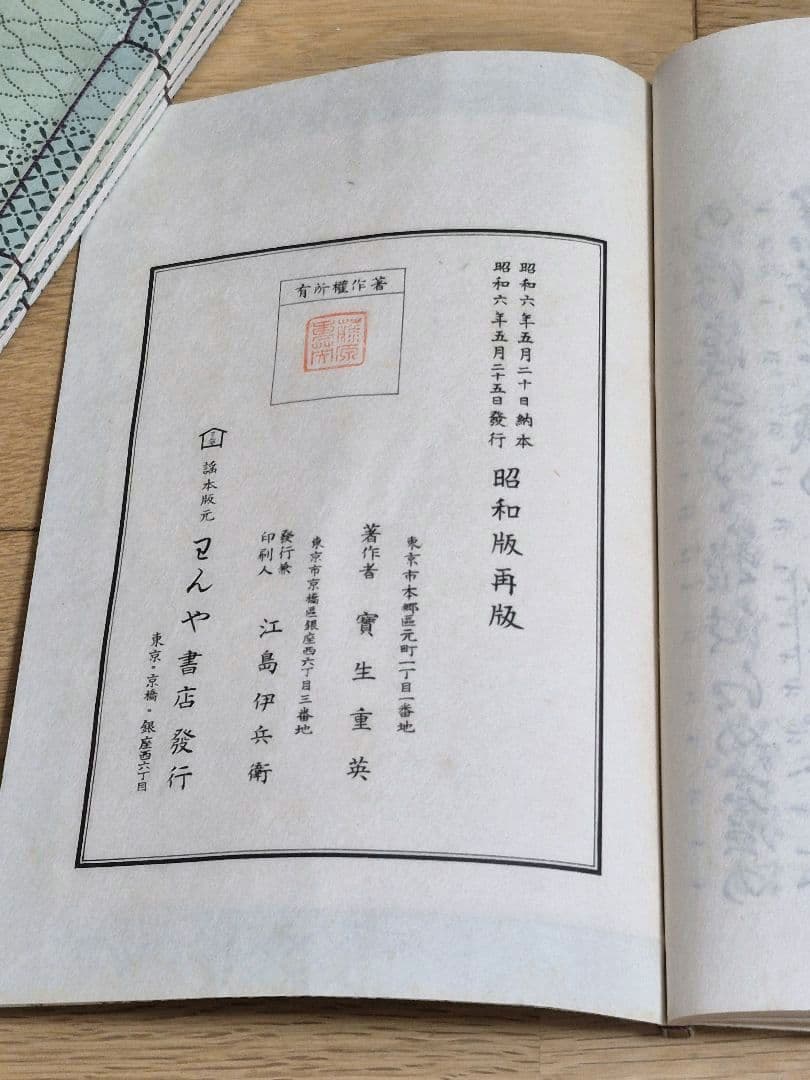 昭和六年五月二十日納本
昭和六年五月二十五日發行
昭和版再版
著作權所有
東京市本郷區元町一丁目一番地
著作者 寶生重英
東京市京橋區銀座西六丁目三番地
發行兼
印刷人 江島伊兵衛
謡本版元 わんや書店發行
東京・京橋・銀座西六丁目